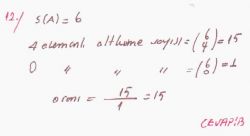 12-) S(A) = 6
4 elemanlı altküme sayısı = (6 4) = 15
0 " " " = (6 0) = 1
oranı = 15/1 = 15
CEVAP: B